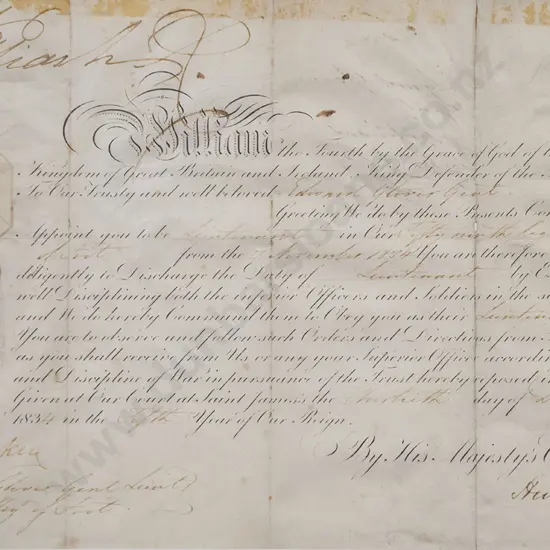 William the Fourth by the Grace of God of the
Kingdom of Great Britain and Ireland, King, Defender of the
To Our Trusty and well beloved Edward Glover Gent
Greeting We do by these Presents Con
Appoint you to be Lieutenant in Our
Foot from the November 1834 You are therefore
diligently to Discharge the Duty of Lieutenant by E
well Disciplining both the inferior Officers and Soldiers in the s
and We do hereby Command them to Obey you as their Lieuten
You are to observe and follow such Orders and Directions from
as you shall receive from Us or any your Superior Officer accordi
and Discipline of War in pursuance of the Trust hereby reposed i
Given at Our Court at Saint James's the day of
1834 in the Year of Our Reign.
By His Majesty's C
Glover Gent Lieut
of Foot